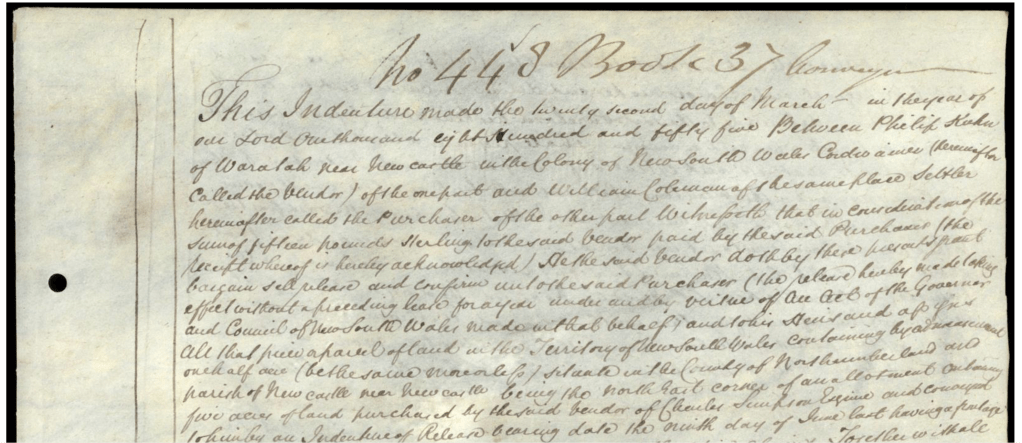 No 448 Book 37 Conveyce
This Indenture made the twenty second day of March in the year of
our Lord One thousand eight Hundred and fifty five Between Philip Kuhn
of Waratah near Newcastle in the Colony of New South Wales Cordwainer (hereinafter
called the Vendor) of the one part and William Coleman of the same place Settler
hereinafter called the Purchaser of the other part Witnesseth that in consideration of the
sum of fifteen pounds Sterling to the said Vendor paid by the said Purchaser (the
receipt whereof is hereby acknowledged) He the said Vendor doth by these presents grant
bargain sell release and confirm unto the said Purchaser (the release hereby made taking
effect without a preceding lease for a year under and by virtue of an Act of the Governor
and Council of New South Wales made in that behalf) and to his Heirs and assigns
All that piece or parcel of land in the Territory of New South Wales containing by admeasurement
one half acre (be the same more or less) situate in the County of Northumberland and
parish of Newcastle near Newcastle being the north East corner of an allotment containing
five acres of land purchased by the said Vendor of Charles Simpson Esquire and conveyed
to him by an Indenture of Release bearing date the ninth day of June last having a frontage
Together with all